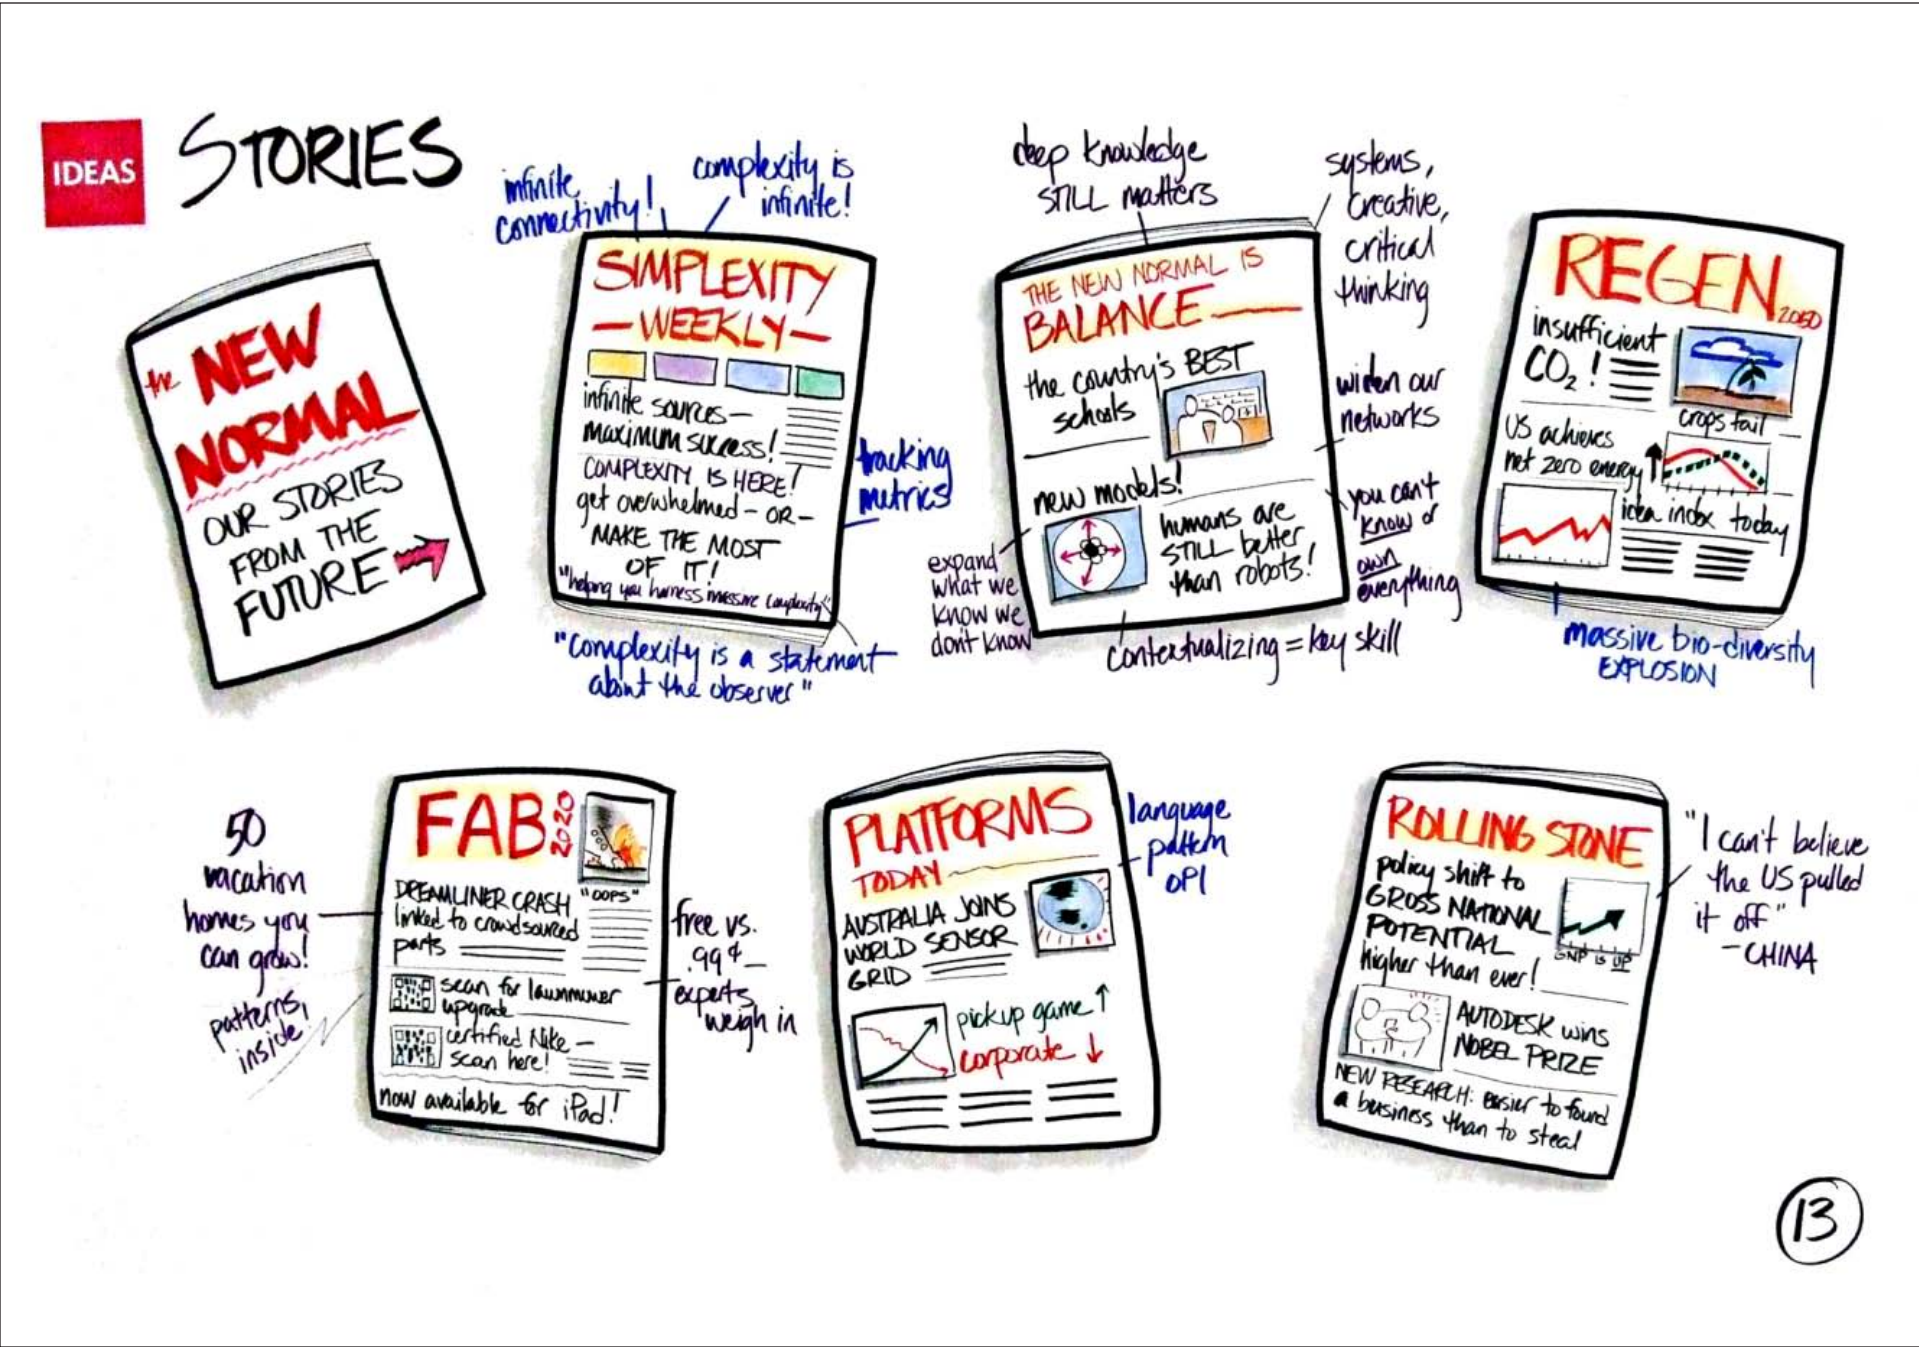 IDEAS
STORIES
the NEW
NORMAL
OUR STORIES
FROM THE
FUTURE
infinite
connectivity!
complexity is
infinite!
SIMPLEXITY
- WEEKLY -
infinite sources -
maximum success!
COMPLEXITY IS HERE!
get overwhelmed - OR -
MAKE THE MOST
OF IT!
"helping you harness massive complexity"
tracking
metrics
"Complexity is a statement
about the observer"
deep knowledge
STILL matters
systems,
creative,
critical
thinking
THE NEW NORMAL IS
BALANCE
the country's BEST
schools
new models!
humans are
STILL better
than robots!
widen our
networks
you can't
know or
own
everything
expand
what we
know we
don't know
contextualizing = key skill
REGEN 2050
insufficient
CO2!
crops fail
US achieves
net zero energy
idea index today
massive bio-diversity
EXPLOSION
50
vacation
homes you
can grow!
patterns,
inside
FAB 2020
DREAMLINER CRASH
linked to crowdsourced
parts
"OOPS"
scan for lawnmower
upgrade
certified Nike -
scan here!
now available for iPad!
free vs.
.99¢ -
experts
weigh in
PLATFORMS
TODAY
AUSTRALIA JOINS
WORLD SENSOR
GRID
pickup game ↑
corporate ↓
language
pattern
OP!
ROLLING STONE
policy shift to
GROSS NATIONAL
POTENTIAL
higher than ever!
GNP IS UP
AUTODESK wins
NOBEL PRIZE
NEW RESEARCH: easier to found
a business than to steal
"I can't believe
the US pulled
it off"
- CHINA
13